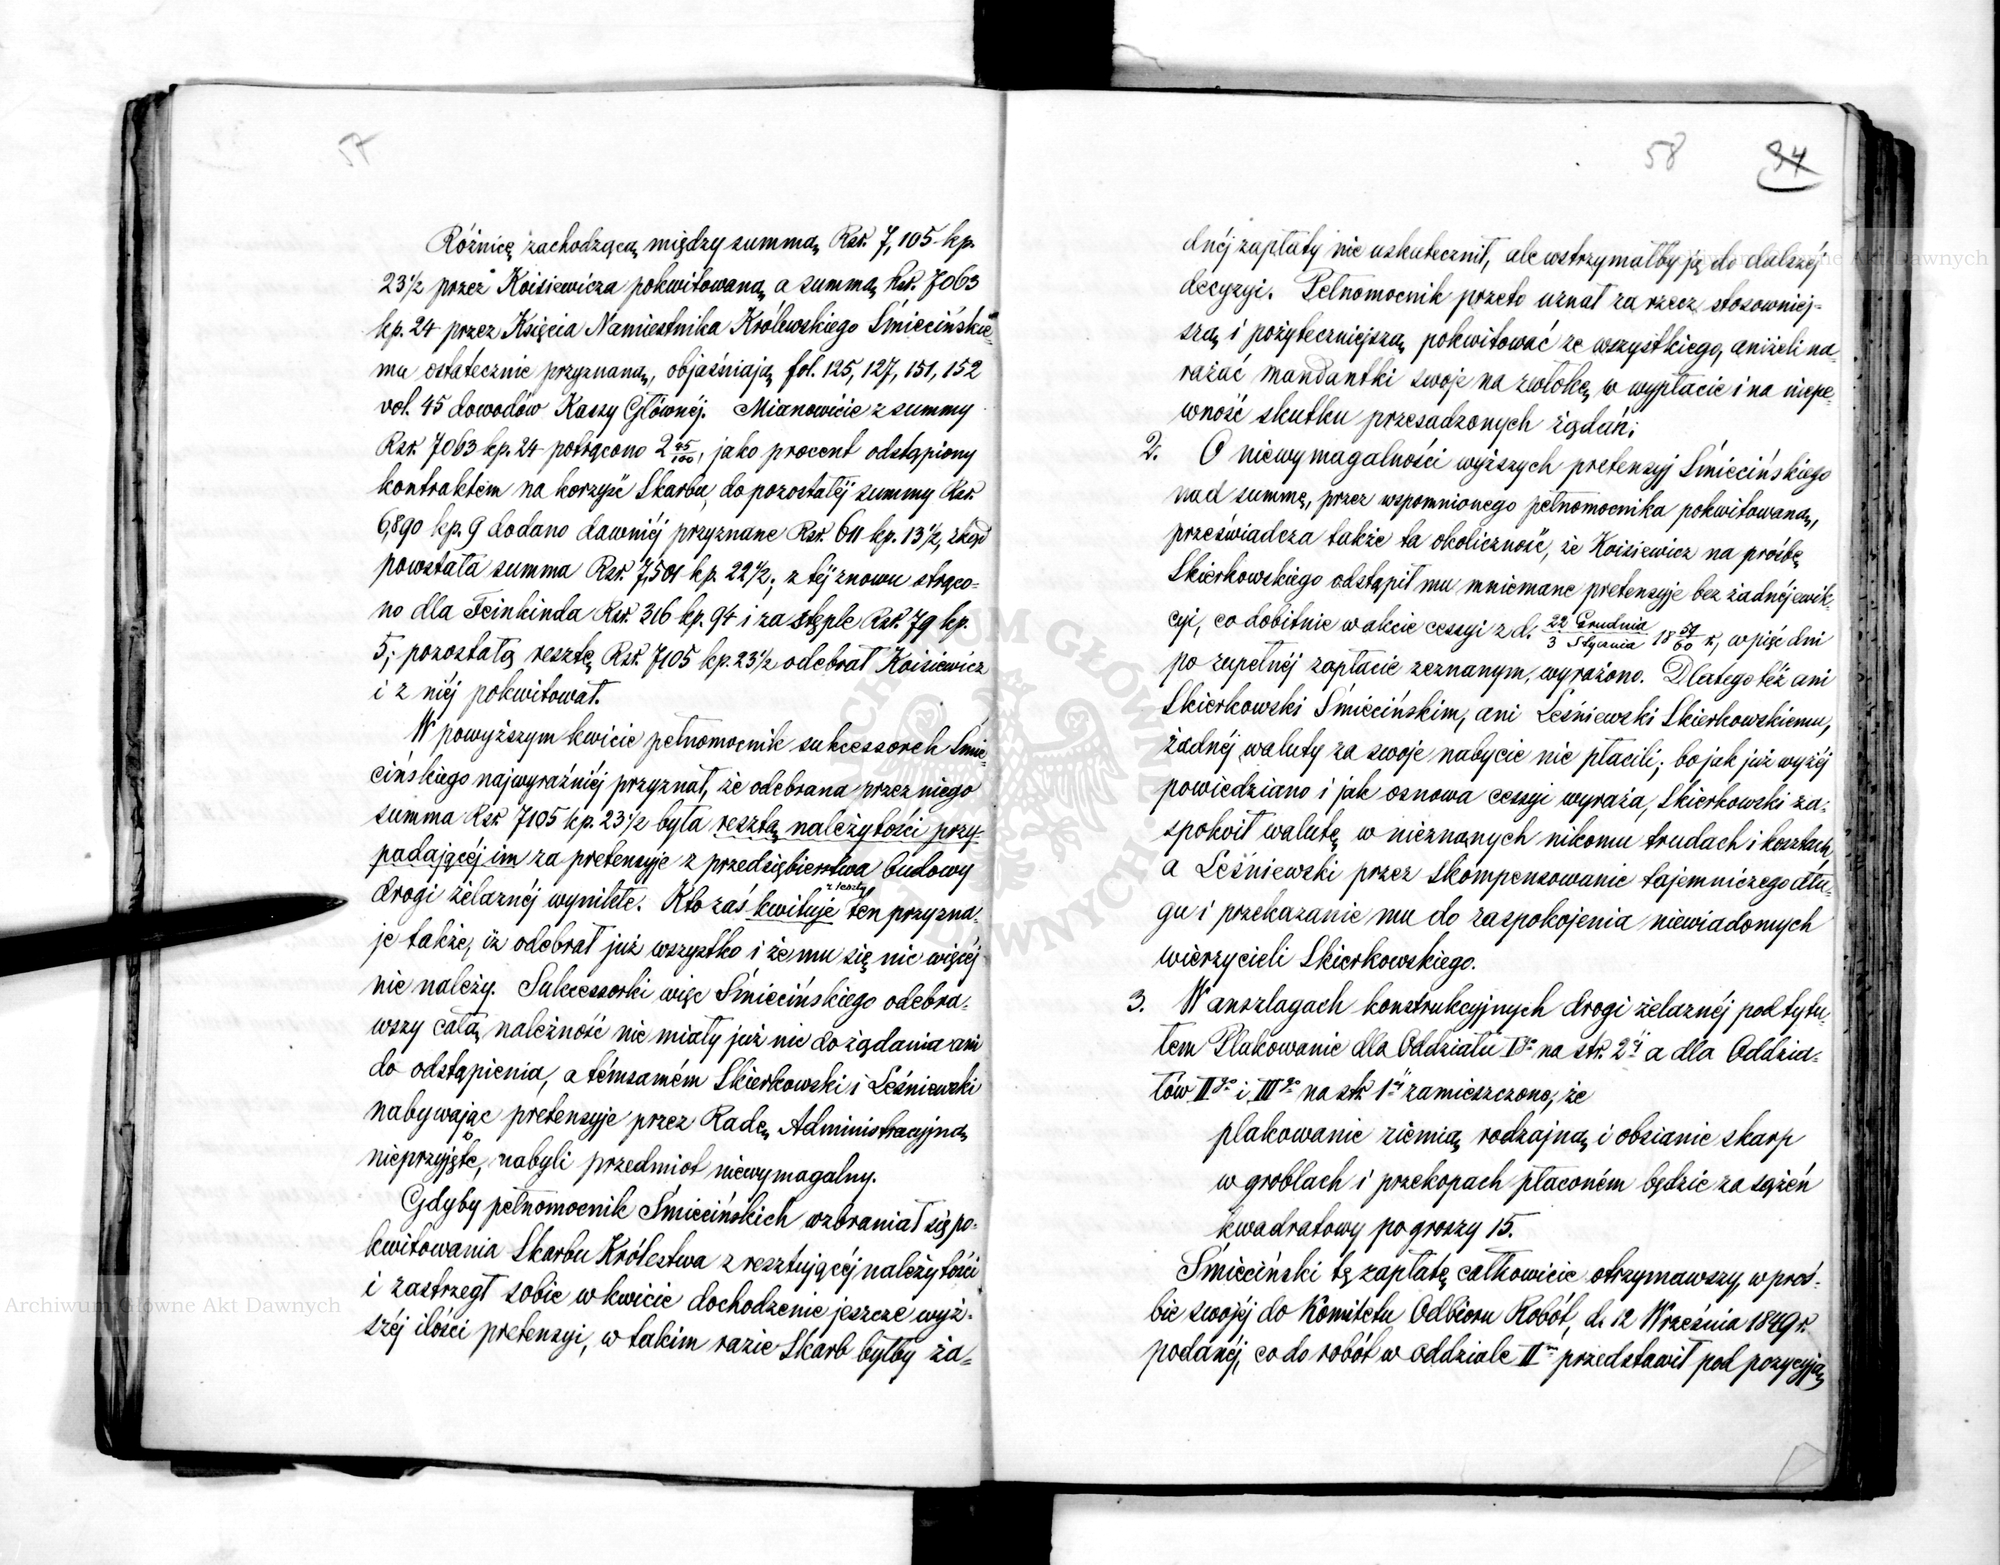 57
Różnicę zachodzącą między summą Rsr. 7,105 kp.
23½ przez Koisiewicza pokwitowaną a summą Rsr. 7063
kp. 24 przez Księcia Namiestnika Królewskiego Śmiecińskie-
mu ostatecznie przyznaną, objaśniają fol. 125, 127, 151, 152
vol. 45 dowodów Kassy Głównéj. Mianowicie z summy
Rsr. 7063 kp. 24 potrącono 2 45/100, jako procent odstąpiony
kontraktem na korzyść Skarbu, do pozostałéj summy Rsr.
6,890 kp. 9 dodano dawniéj przyznane Rsr. 611 kp. 13½, zkąd
powstała summa Rsr. 7,501 kp. 22½; z téj znowu strąco-
no dla Feinkinda Rsr. 316 kp. 94 i za stęple Rsr. 79 kp.
5; pozostałą resztę Rsr. 7105 kp. 23½ odebrał Koisiewicz
i z niéj pokwitował.
W powyższym kwicie pełnomocnik sukcessorek Śmie-
cińskiego najwyraźniéj przyznał, że odebrana przez niego
summa Rsr. 7105 kp. 23½ była resztą należytości przy-
padającéj im za pretensyje z przedsiębierstwa budowy
drogi żelaznéj wynikłe. Kto zaś kwituje z reszty ten przyzna-
je także, iż odebrał już wszystko i że mu się nic więcéj
nie należy. Sukcessorki więc Śmiecińskiego odebra-
wszy całą należność nie miały już nic do żądania ani
do odstąpienia, a témsamém Skierkowski i Leśniewski
nabywając pretensyje przez Radę Administracyjną
nieprzyjęte, nabyli przedmiot niewymagalny.
Gdyby pełnomocnik Śmiecińskich wzbraniał się po-
kwitowania Skarbu Królestwa z resztującéj należytości
i zastrzegł sobie w kwicie dochodzenie jeszcze wyż-
széj ilości pretensyi, w takim razie Skarb byłby ża-
58 34
dnéj zapłaty nie uskutecznił, ale wstrzymałby ją do dalszéj
decyzyi. Pełnomocnik przeto uznał za rzecz stosowniej-
szą i pożyteczniejszą pokwitować ze wszystkiego, aniżeli na-
rażać mandantki swoje na zwłokę w wypłacie i na niepe-
wność skutku przesadzonych żądań;
2. O niewymagalności wyższych pretensyj Śmiecińskiego
nad summę, przez wspomnionego pełnomocnika pokwitowaną,
przeświadcza także ta okoliczność, że Koisiewicz na prośbę
Skierkowskiego odstąpił mu mniemane pretensyje bez żadnéj ewik-
cyi, co dobitnie w akcie cessyi z d. 22 Grudnia/3 Stycznia 18 59/60 r., w pięć dni
po zupełnéj zapłacie zeznanym, wyrażono. Dlatego téż ani
Skierkowski Śmiecińskim, ani Leśniewski Skierkowskiemu,
żadnéj waluty za swoje nabycie nie płacili; bo jak już wyżéj
powiedziano i jak osnowa cessyi wyraża, Skierkowski za-
spokoił walutę w nieznanych nikomu trudach i kosztach,
a Leśniewski przez skompensowanie tajemniczego dłu-
gu i przekazanie mu do zaspokojenia niewiadomych
wierzycieli Skierkowskiego.
3. W anszlagach konstrukcyjnych drogi żelaznéj pod tytu-
łem Plakowanie dla Oddziału Igo na str. 2éj a dla Oddzia-
łów IIgo i IIIgo na str. 1éj zamieszczono, że
plakowanie ziemią rodzajną i obsianie skarp
w groblach i przekopach płaconém będzie za sążeń
kwadratowy po groszy 15.
Śmieciński tę zapłatę całkowicie otrzymawszy, w proś-
bie swojéj do Komitetu Odbioru Robót, d. 12 Września 1849 r.
podanéj, co do robót w oddziale IIm przedstawił pod pozycyją
Archiwum Główne Akt Dawnych